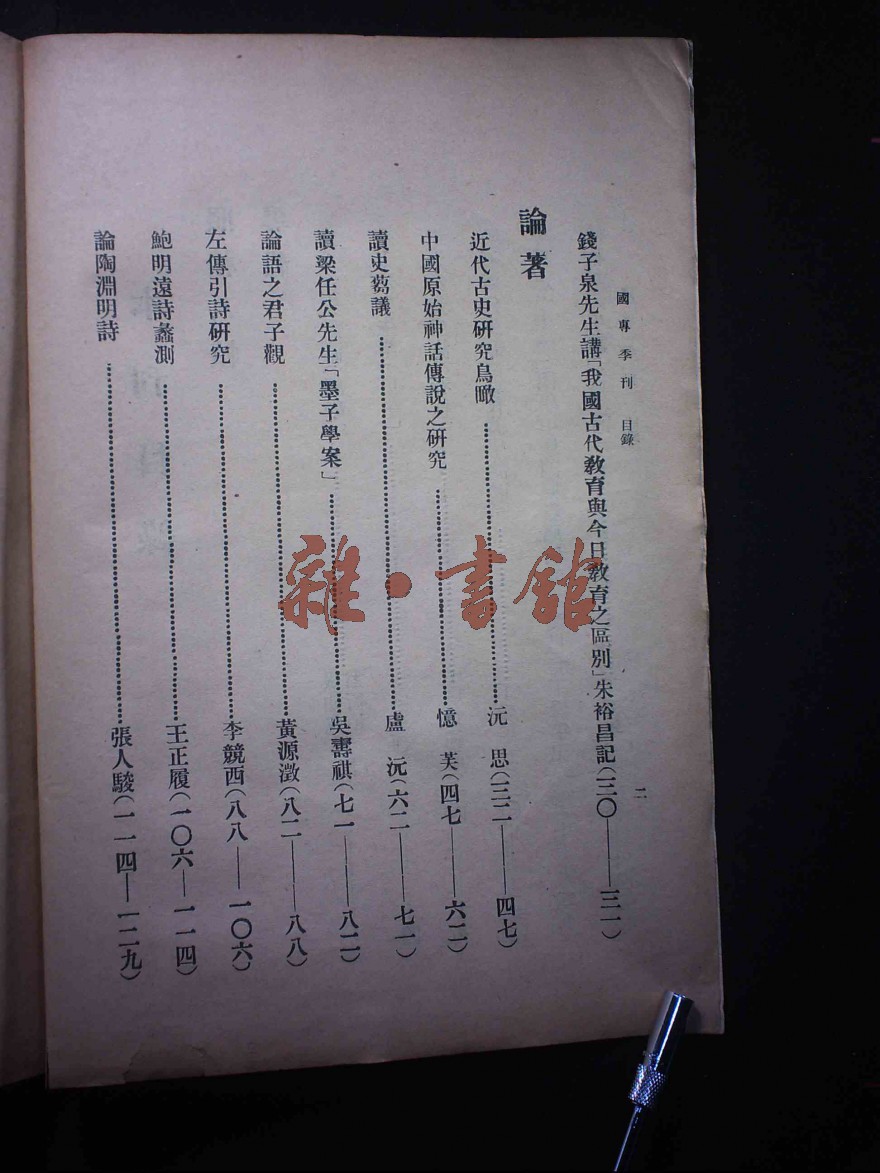 國專季刊 目錄 二
錢子泉先生講「我國古代教育與今日教育之區別」朱裕昌記(三〇——三一)
論著
近代古史研究鳥瞰……沅 思(三二——四七)
中國原始神話傳說之研究……憶 芙(四七——六二)
讀史蒭議……盧 沅(六二——七一)
讀梁任公先生「墨子學案」……吳壽祺(七一——八二)
論語之君子觀……黃源澂(八二——八八)
左傳引詩研究……李競西(八八——一〇六)
鮑明遠詩蠡測……王正履(一〇六—一一四)
論陶淵明詩……張人駿(一一四—一二九)
雜·書館